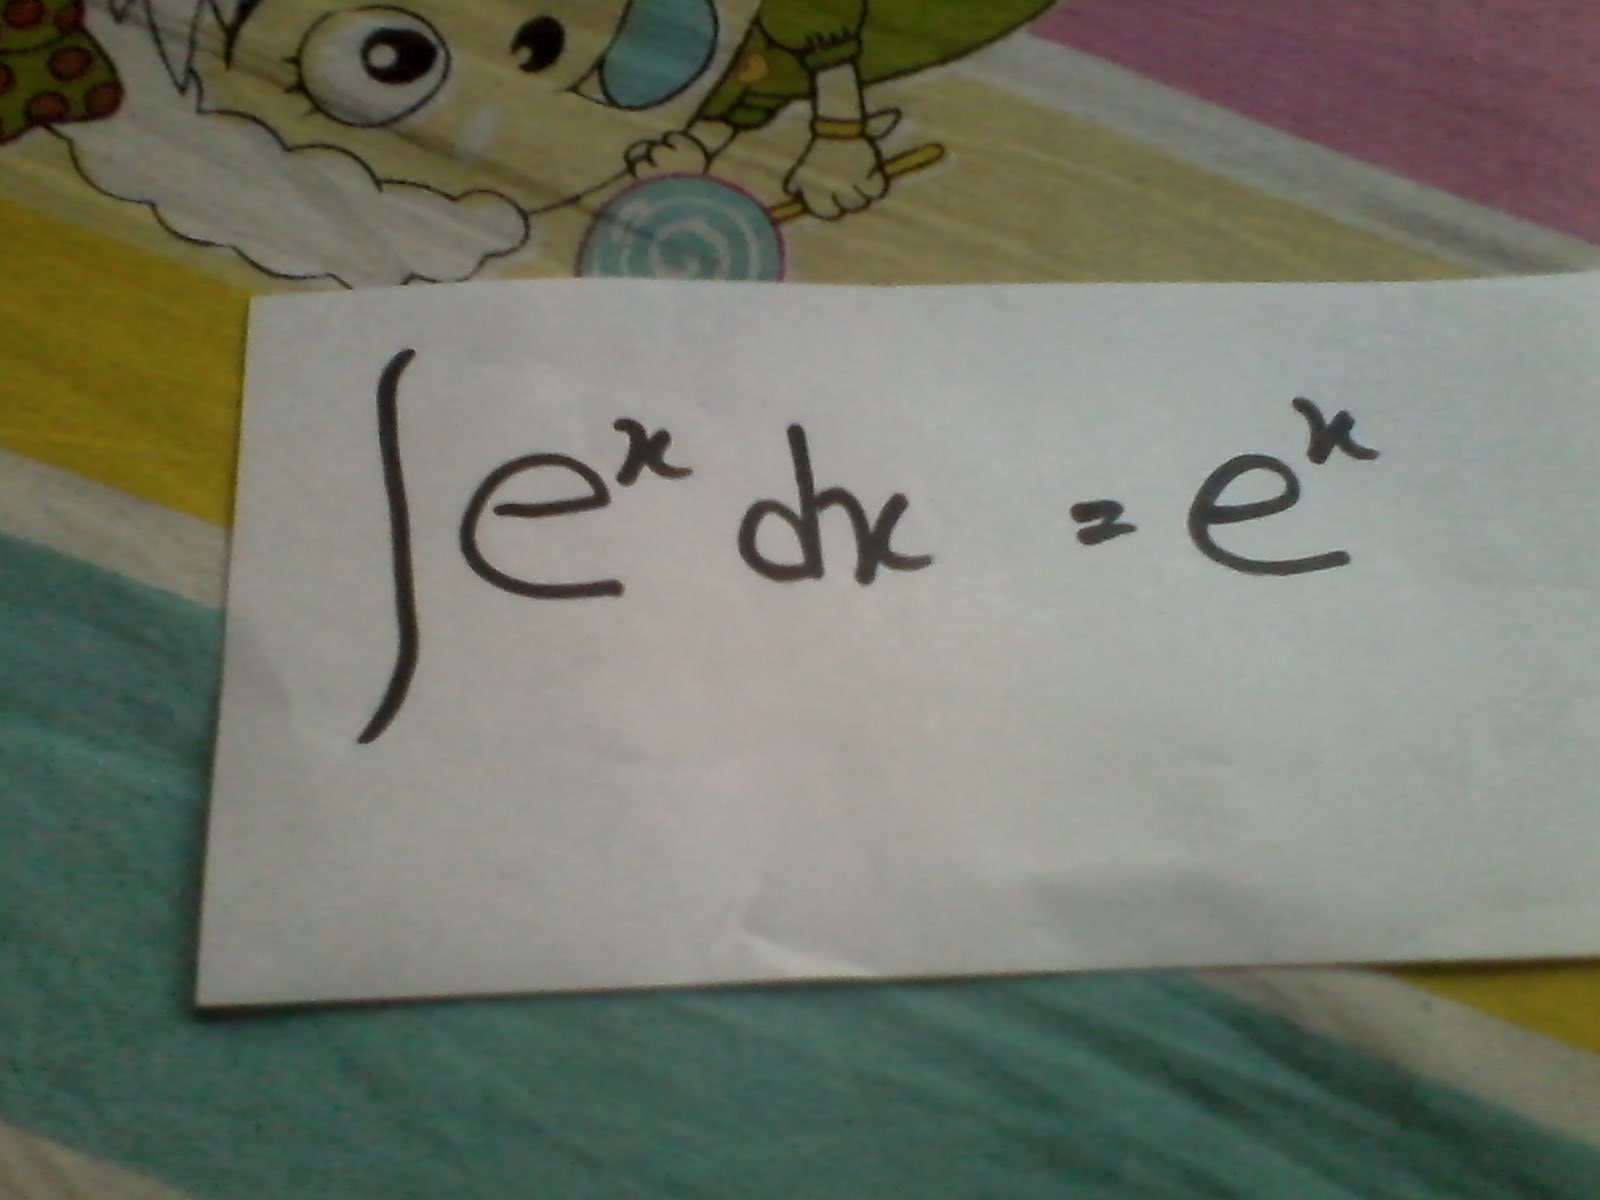 ∫ eˣ dx = eˣ